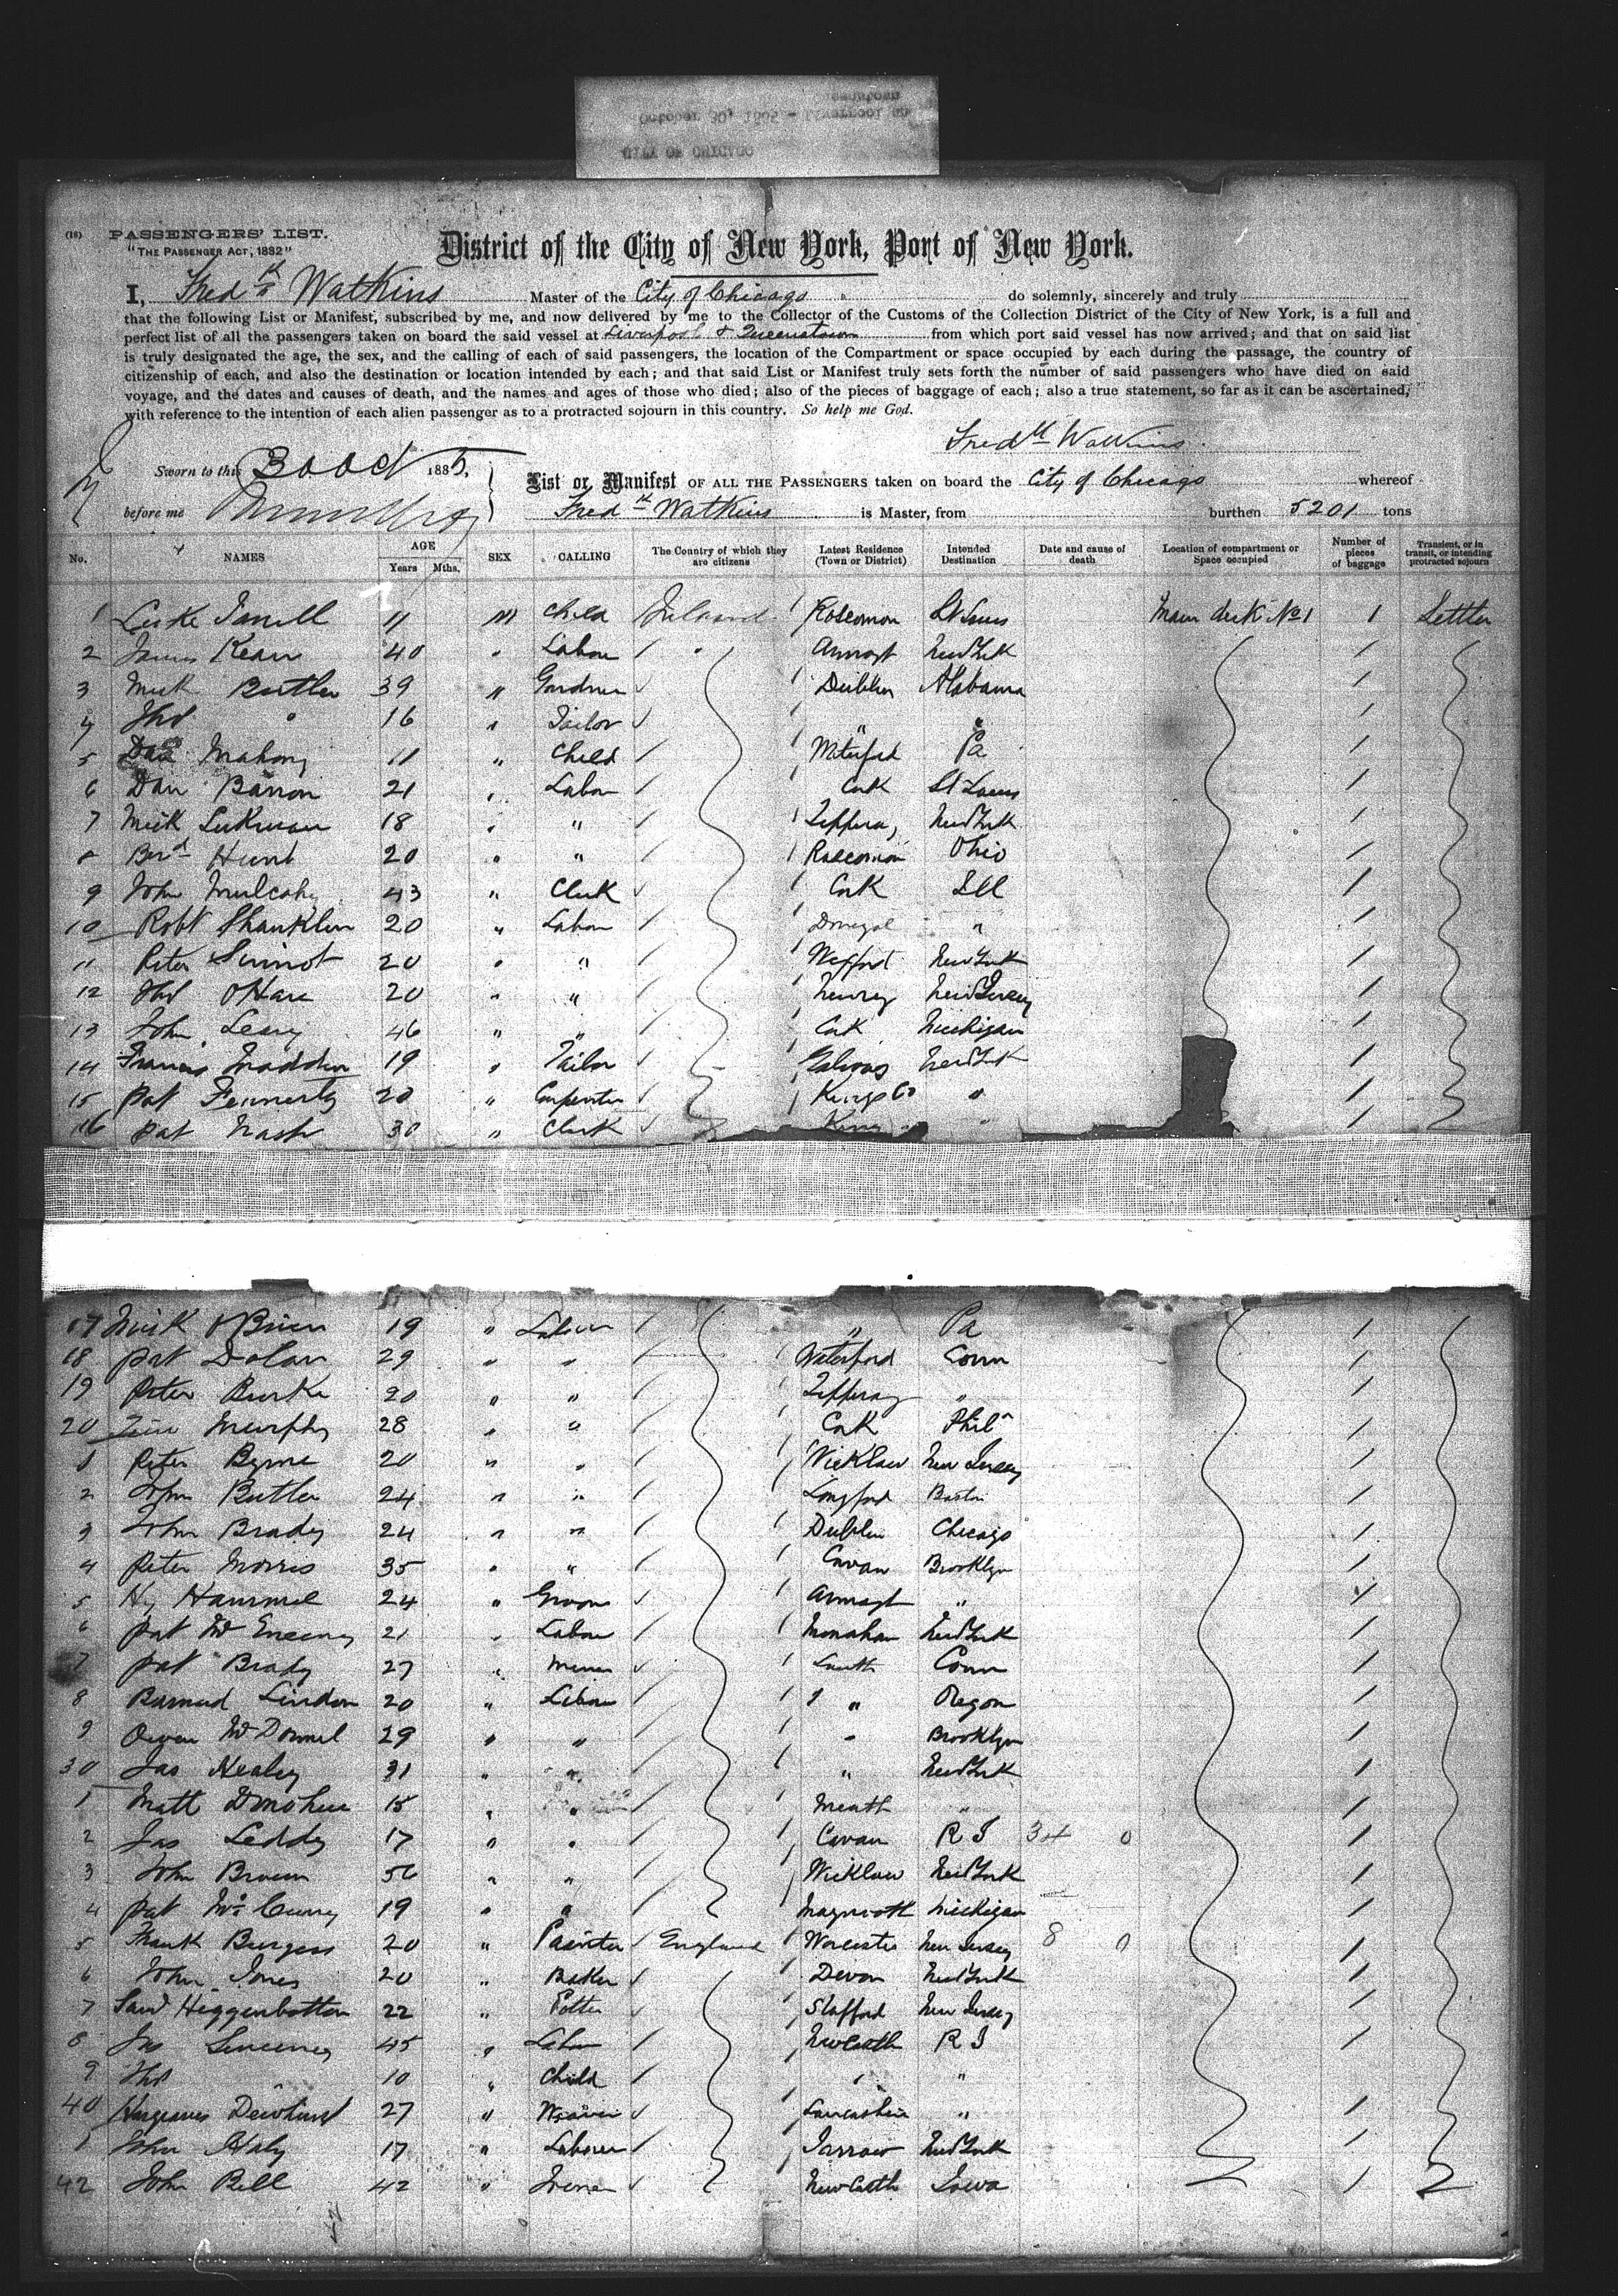 CITY OF CHICAGO
October 30, 1885 - Liverpool an
(18) PASSENGERS' LIST.
"THE PASSENGER ACT, 1882"
District of the City of New York, Port of New York.
I, Fredk Watkins Master of the City of Chicago do solemnly, sincerely and truly
that the following List or Manifest, subscribed by me, and now delivered by me to the Collector of the Customs of the Collection District of the City of New York, is a full and
perfect list of all the passengers taken on board the said vessel at Liverpool & Queenstown from which port said vessel has now arrived; and that on said list
is truly designated the age, the sex, and the calling of each of said passengers, the location of the Compartment or space occupied by each during the passage, the country of
citizenship of each, and also the destination or location intended by each; and that said List or Manifest truly sets forth the number of said passengers who have died on said
voyage, and the dates and causes of death, and the names and ages of those who died; also of the pieces of baggage of each; also a true statement, so far as it can be ascertained,
with reference to the intention of each alien passenger as to a protracted sojourn in this country. So help me God.
Fredk Watkins
Sworn to this 30 Oct 1885,
List or Manifest OF ALL THE PASSENGERS taken on board the City of Chicago whereof
before me
Fredk Watkins is Master, from burthen 5201 tons
No. NAMES AGE Years Mths. SEX CALLING The Country of which they are citizens Latest Residence (Town or District) Intended Destination Date and cause of death Location of compartment or Space occupied Number of pieces of baggage Transient, or in transit, or intending protracted sojourn
1 Luke 11 M Child Ireland Roscomon St Louis Main deck No 1 1 Settler
2 James Kean 40 " Labour " Armagh New York 1
3 Mick Butler 39 " Gardner Dublin Alabama 1
4 Thos " 16 " Tailor " " 1
5 Mahony 11 " Child Waterford Pa 1
6 Dan Barron 21 " Labour Cork St Louis 1
7 Mick 18 " " Tipperay New York 1
8 Berd Hunt 20 " " Roscomon Ohio 1
9 John Mulcahy 43 " Clerk Cork Ill 1
10 Robt Shanklin 20 " Labour Donegal " 1
11 Peter Sinnot 20 " " Wexford New York 1
12 Thos OHare 20 " " Newry New Jersey 1
13 John Leary 46 " " Cork Michigan 1
14 Francis Madden 19 " Tailor Galway New York 1
15 Pat Fennerty 20 " Carpenter Kings Co " 1
16 Pat Nash 30 " Clerk " 1
17 Mick OBrien 19 " Labour " Pa 1
18 Pat Dolan 29 " " Waterford Conn 1
19 Peter Burke 20 " " Tipperay " 1
20 Tim Murphy 28 " " Cork Phila 1
1 Peter Byrne 20 " " Wicklow New Jersey 1
2 John Butler 24 " " Longford Boston 1
3 John Brady 24 " " Dublin Chicago 1
4 Peter Morris 35 " " Cavan Brooklyn 1
5 Hy Hammel 24 " Groom Armagh " 1
6 Pat McEneeny 21 " Labour Monahan New York 1
7 Pat Brady 27 " Miner Louth Conn 1
8 Barnard Lindon 20 " Labour " Oregon 1
9 Owen McDonnel 29 " " " Brooklyn 1
30 Jas Healey 31 " " " New York 1
1 Matt Donohue 15 " " Meath " 1
2 Jas Leddy 17 " " Cavan R I 34 0 1
3 John Brown 56 " " Wicklow New York 1
4 Pat 19 " " Maynooth Michigan 1
5 Frank Burgess 20 " Painter England Worcester New Jersey 8 0 1
6 John Jones 20 " Baker Devon New York 1
7 Saml Higgenbottom 22 " Potter Stafford New Jersey 1
8 Jas Sweeney 45 " Labour Newcastle R I 1
9 Thos " 10 " Child " "
40 Hargeaves Dewhurst 27 " Weaver Lancashire " 1
1 John Haly 17 " Labourer Jarrow New York 1
42 John Bell 42 " Newcastle Iowa 1